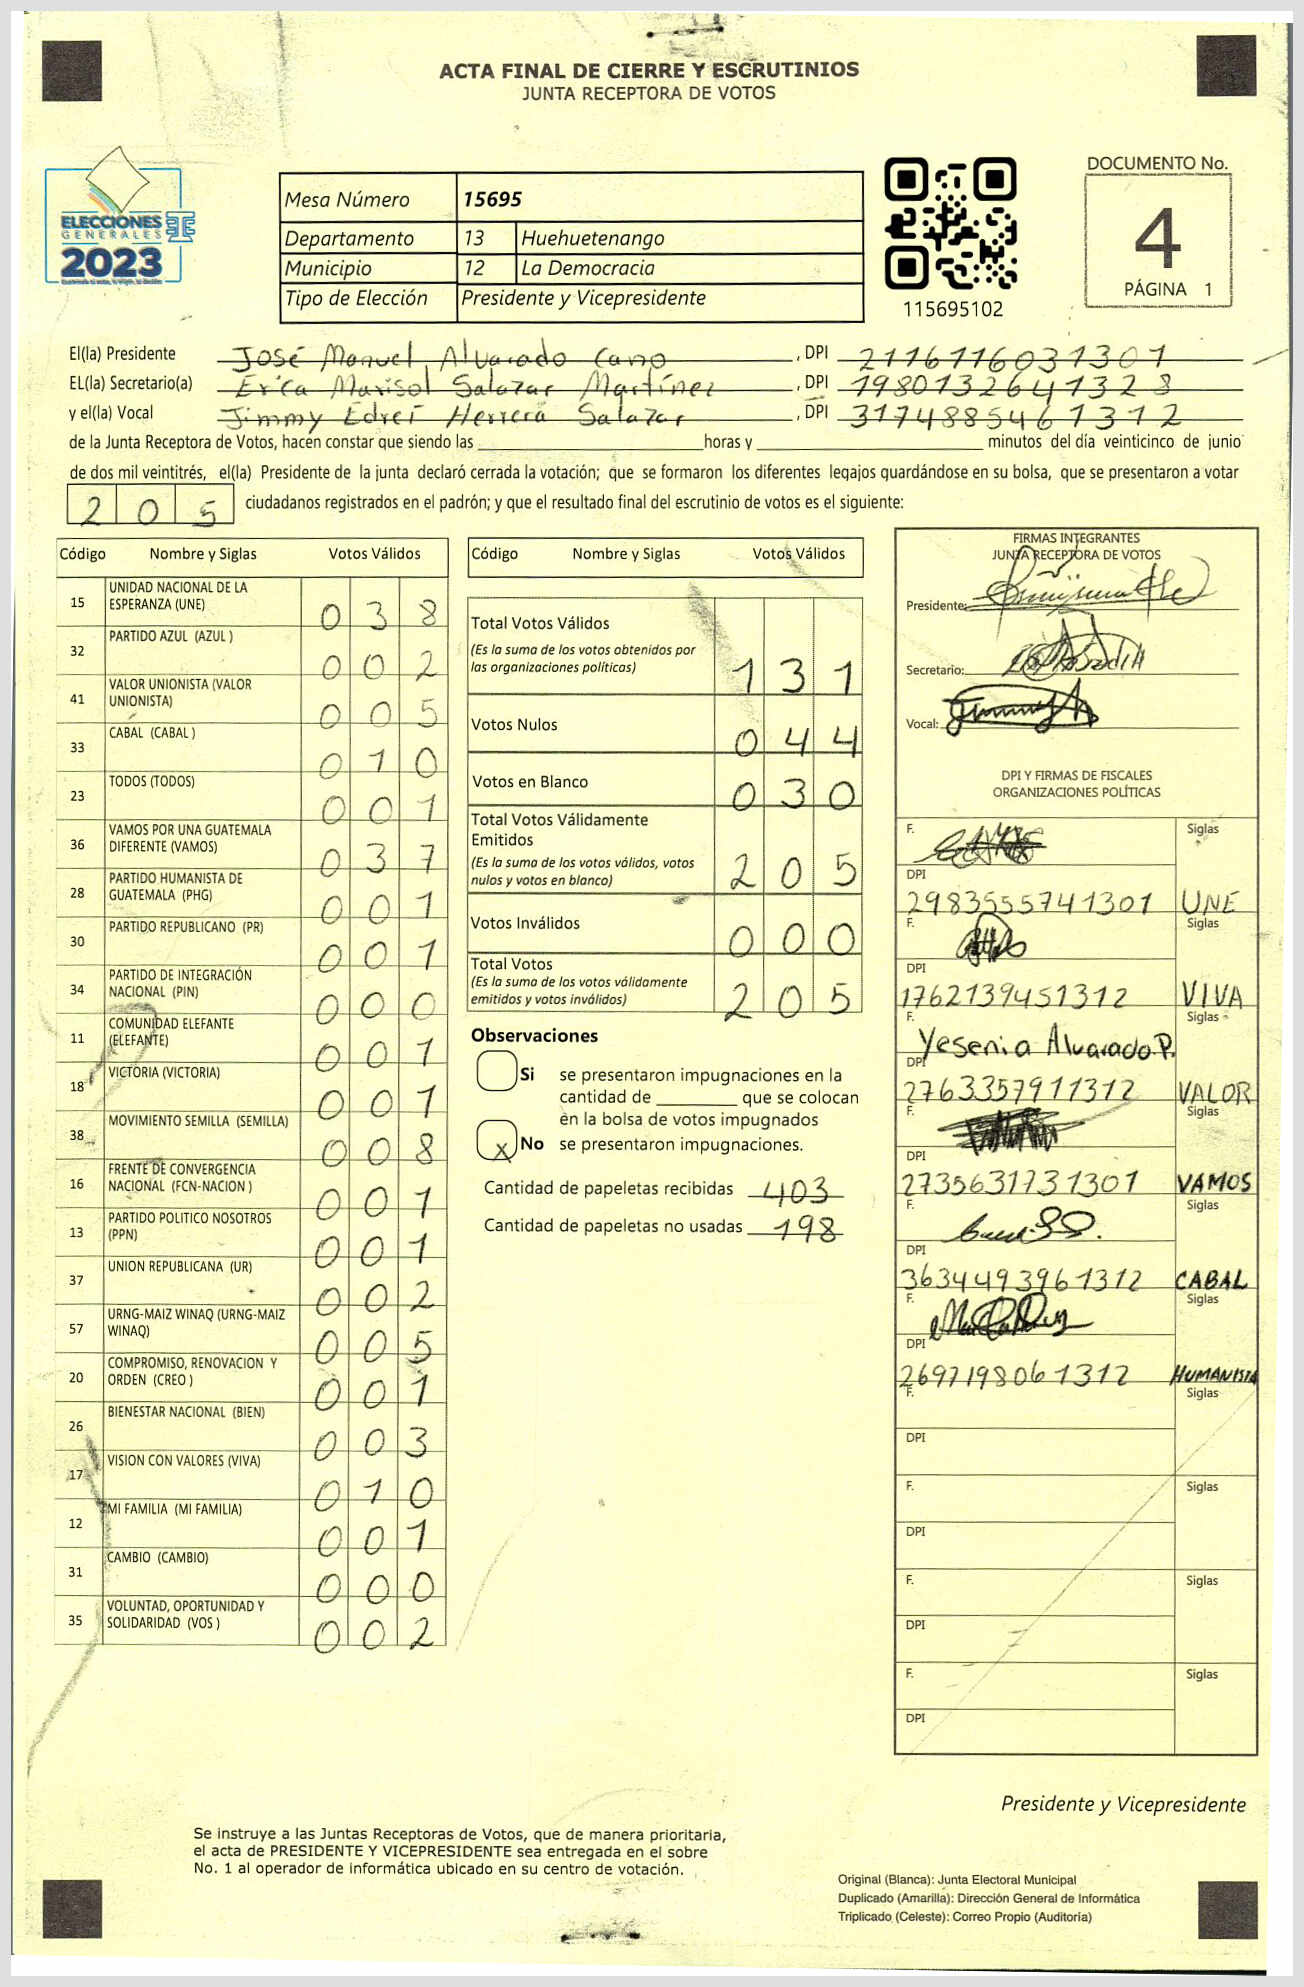 ACTA FINAL DE CIERRE Y ESCRUTINIOS
JUNTA RECEPTORA DE VOTOS
ELECCIONES
GENERALES
2023
Mesa Número 15695
Departamento 13 Huehuetenango
Municipio 12 La Democracia
Tipo de Elección Presidente y Vicepresidente
115695102
DOCUMENTO No.
4
PÁGINA 1
El(la) Presidente José Manuel Alvarado Cano, DPI 2116116031301
EL(la) Secretario(a) Erica Marisol Salazar Martínez, DPI 1980132641328
y el(la) Vocal Jimmy Edreí Herrera Salazar, DPI 3174885461312
de la Junta Receptora de Votos, hacen constar que siendo las horas y minutos del día veinticinco de junio
de dos mil veintitrés, el(la) Presidente de la junta declaró cerrada la votación; que se formaron los diferentes legajos guardándose en su bolsa, que se presentaron a votar
205 ciudadanos registrados en el padrón; y que el resultado final del escrutinio de votos es el siguiente:
Código Nombre y Siglas Votos Válidos
15 UNIDAD NACIONAL DE LA ESPERANZA (UNE) 038
32 PARTIDO AZUL (AZUL ) 002
41 VALOR UNIONISTA (VALOR UNIONISTA) 005
33 CABAL (CABAL ) 010
23 TODOS (TODOS) 001
36 VAMOS POR UNA GUATEMALA DIFERENTE (VAMOS) 037
28 PARTIDO HUMANISTA DE GUATEMALA (PHG) 001
30 PARTIDO REPUBLICANO (PR) 001
34 PARTIDO DE INTEGRACIÓN NACIONAL (PIN) 000
11 COMUNIDAD ELEFANTE (ELEFANTE) 001
18 VICTORIA (VICTORIA) 001
38 MOVIMIENTO SEMILLA (SEMILLA) 008
16 FRENTE DE CONVERGENCIA NACIONAL (FCN-NACION ) 001
13 PARTIDO POLITICO NOSOTROS (PPN) 001
37 UNION REPUBLICANA (UR) 002
57 URNG-MAIZ WINAQ (URNG-MAIZ WINAQ) 005
20 COMPROMISO, RENOVACION Y ORDEN (CREO ) 001
26 BIENESTAR NACIONAL (BIEN) 003
17 VISION CON VALORES (VIVA) 010
12 MI FAMILIA (MI FAMILIA) 001
31 CAMBIO (CAMBIO) 000
35 VOLUNTAD, OPORTUNIDAD Y SOLIDARIDAD (VOS ) 002
Código Nombre y Siglas Votos Válidos
Total Votos Válidos
(Es la suma de los votos obtenidos por
las organizaciones políticas) 131
Votos Nulos 044
Votos en Blanco 030
Total Votos Válidamente
Emitidos
(Es la suma de los votos válidos, votos
nulos y votos en blanco) 205
Votos Inválidos 000
Total Votos
(Es la suma de los votos válidamente
emitidos y votos inválidos) 205
Observaciones
Si se presentaron impugnaciones en la
cantidad de que se colocan
en la bolsa de votos impugnados
x No se presentaron impugnaciones.
Cantidad de papeletas recibidas 403
Cantidad de papeletas no usadas 198
FIRMAS INTEGRANTES
JUNTA RECEPTORA DE VOTOS
Presidente:
Secretario:
Vocal:
DPI Y FIRMAS DE FISCALES
ORGANIZACIONES POLÍTICAS
F. Siglas
DPI
2983555741301 UNE
F. Siglas
DPI
1762139451312 VIVA
F. Siglas
Yesenia Alvarado P.
DPI
2763357911312 VALOR
F. Siglas
DPI
2735631731301 VAMOS
F. Siglas
DPI
3634493961312 CABAL
F. Siglas
DPI
2697198061312 HUMANISTA
F. Siglas
DPI
F. Siglas
DPI
F. Siglas
DPI
F. Siglas
DPI
Presidente y Vicepresidente
Se instruye a las Juntas Receptoras de Votos, que de manera prioritaria,
el acta de PRESIDENTE Y VICEPRESIDENTE sea entregada en el sobre
No. 1 al operador de informática ubicado en su centro de votación.
Original (Blanca): Junta Electoral Municipal
Duplicado (Amarilla): Dirección General de Informática
Triplicado (Celeste): Correo Propio (Auditoría)